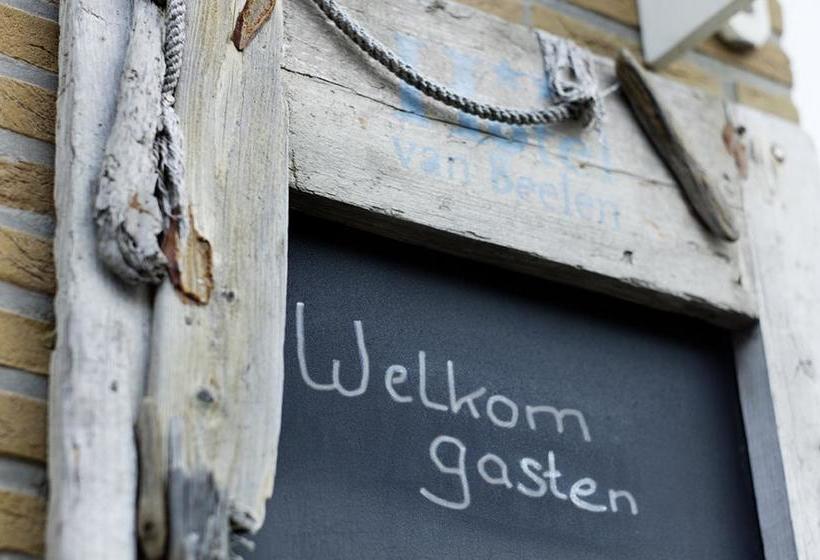 Hotel
van Beelen
Welkom
gasten